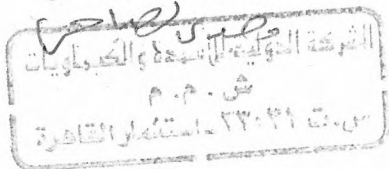 الشركة الدولية للأسمدة والكيماويات
ش . م . م
س.ت ٢٣٠٣١ استثمار القاهرة